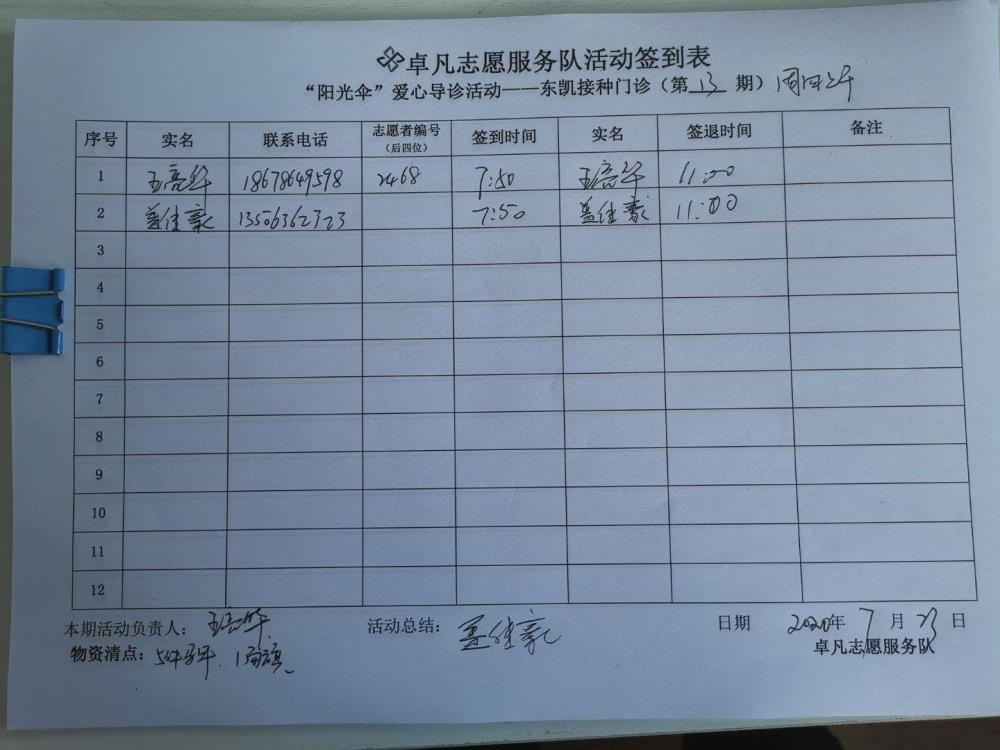 卓凡志愿服务队活动签到表
“阳光伞”爱心导诊活动——东凯接种门诊（第 13 期）周四上午
序号 实名 联系电话 志愿者编号（后四位） 签到时间 实名 签退时间 备注
1 王高华 18678649598 2468 7:50 王高华 11:00
2 盖佳豪 13506362723 7:50 盖佳豪 11:00
3
4
5
6
7
8
9
10
11
12
本期活动负责人：王高华 活动总结：盖佳豪 日期 2020年 7 月 23 日
物资清点：5件马甲、1面旗 卓凡志愿服务队